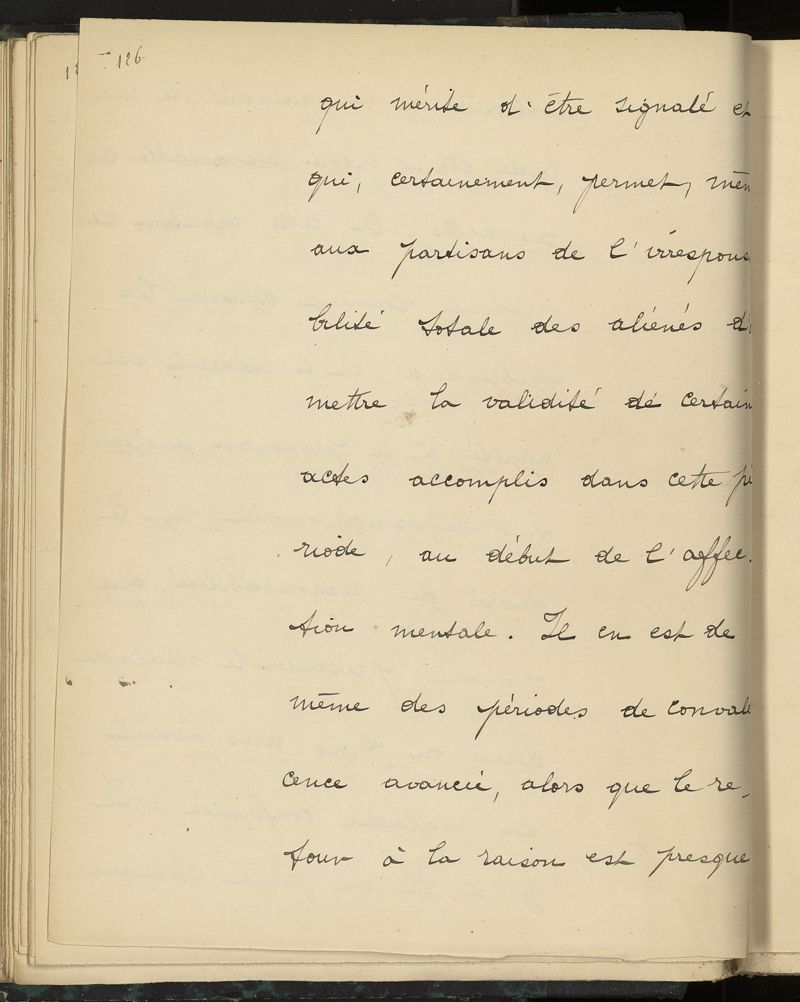 126
qui mérite d'être signalé et
qui, certainement, permet, mêm
aux partisans de l'irrespons
bilité totale des aliénés d'
mettre la validité de certain
actes accomplis dans cette pé
riode, au début de l'affec-
tion mentale. Il en est de
même des périodes de conval
cence avancée, alors que le re-
tour à la raison est presque